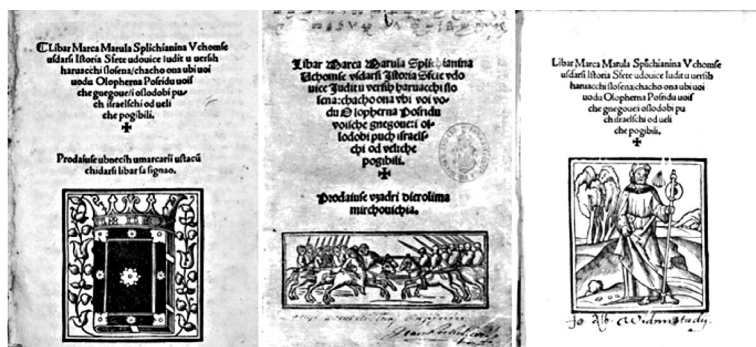 ⵎLibar Marca Marula Splichianina Vchomse
usdarsi Istoria Sfete udouice Iudit u uersih
haruacchi slosena/chacho ona ubi uoi
uodu Olopherna Posridu uoisf
che gnegoue/i oslodobi pu
ch israelschi od ueli
che pogibili.
Prodaiuse ubnecih umarcarii ustacū
chidarsi libar sa signao.
Libar Marca Marula Splichianina
Uchomse usdarsi Istoria Sfete vdo
vice Judit u versih haruacchi slo
sena: chacho ona vbi voi vo
du Olopherna Posridu
voische gnegoue: i os
lodobi puch israels
chi od veliche
pogibili.
Prodaiuse vsadri Dierolima
mirchouichia.
Libar Marca Marula Splichianina Vchomse
usdarsi Istoria Sfete udouice Iudit u uersih
haruacchi slosena/chacho ona ubi uoi
uodu Olopherna Posridu uoisf
che gnegoue/i oslodobi pu
ch israelschi od ueli
che pogibili.
Jo. Alb. Widmstadij.